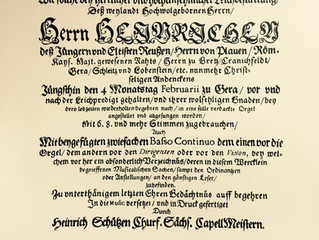 Deß weylandt Hochwolgebornen Herrn/
Herrn HEINRICHEN
deß Jüngern und Eltisten Reussen/ Herrn von Plauen/ Röm.
Kays. Majt. gewesenen Rahts/ Herrn zu Gera/ Cranichfeldt/
Gera/ Schleitz und Lobenstein/ etc. nunmehr Christ-
seligen Andenckens
Jüngsthin den 4 Monatstag Februarii zu Gera/ vor und
nach der Leichpredigt gehalten/ und ihrer wolseligen Gnaden/ bey
dero lebzeiten wiederholten begehren nach/ in eine stille verdackte Orgel
angestellet und abgesungen worden/
Mit 6. 8. und mehr Stimmen zugebrauchen/
Auch
Mit beygefügten zwiefachen Basso Continuo dem einen vor die
Orgel/ dem andern vor den Dirigenten oder vor den Violon, bey wel-
chem vor her ein absonderlich Verzeichnüs/ deren in diesem Wercklein
begriffenen Musicalischen Sachen/ sampt den Ordinantzen
oder Anstellung/ an den günstigen Leser/
zubefinden.
Zu unterthänigem letzten Ehren Gedächtnüs auff begehren
In die Music versetzt/ und in Druck gefertiget
Durch
Heinrich Schützen Churf. Sächs. CapellMeistern.